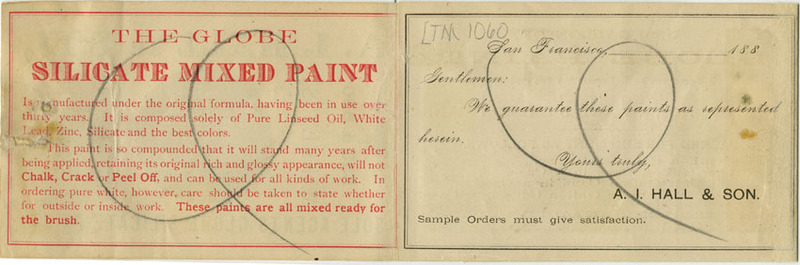 THE GLOBE
SILICATE MIXED PAINT
Is manufactured under the original formula, having been in use over
thirty years. It is composed solely of Pure Linseed Oil, White
Lead, Zinc, Silicate and the best colors.
This paint is so compounded that it will stand many years after
being applied, retaining its original rich and glossy appearance, will not
Chalk, Crack or Peel Off, and can be used for all kinds of work. In
ordering pure white, however, care should be taken to state whether
for outside or inside work. These paints are all mixed ready for
the brush.
[TM 1060
San Francisco, 188
Gentlemen:
We guarantee these paints as represented
herein.
Yours truly,
A. I. HALL & SON.
Sample Orders must give satisfaction.